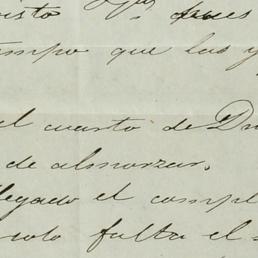 visto
tiempo que las y
el cuarto de Dn
de almorzar.
llegado el compl
solo falta el